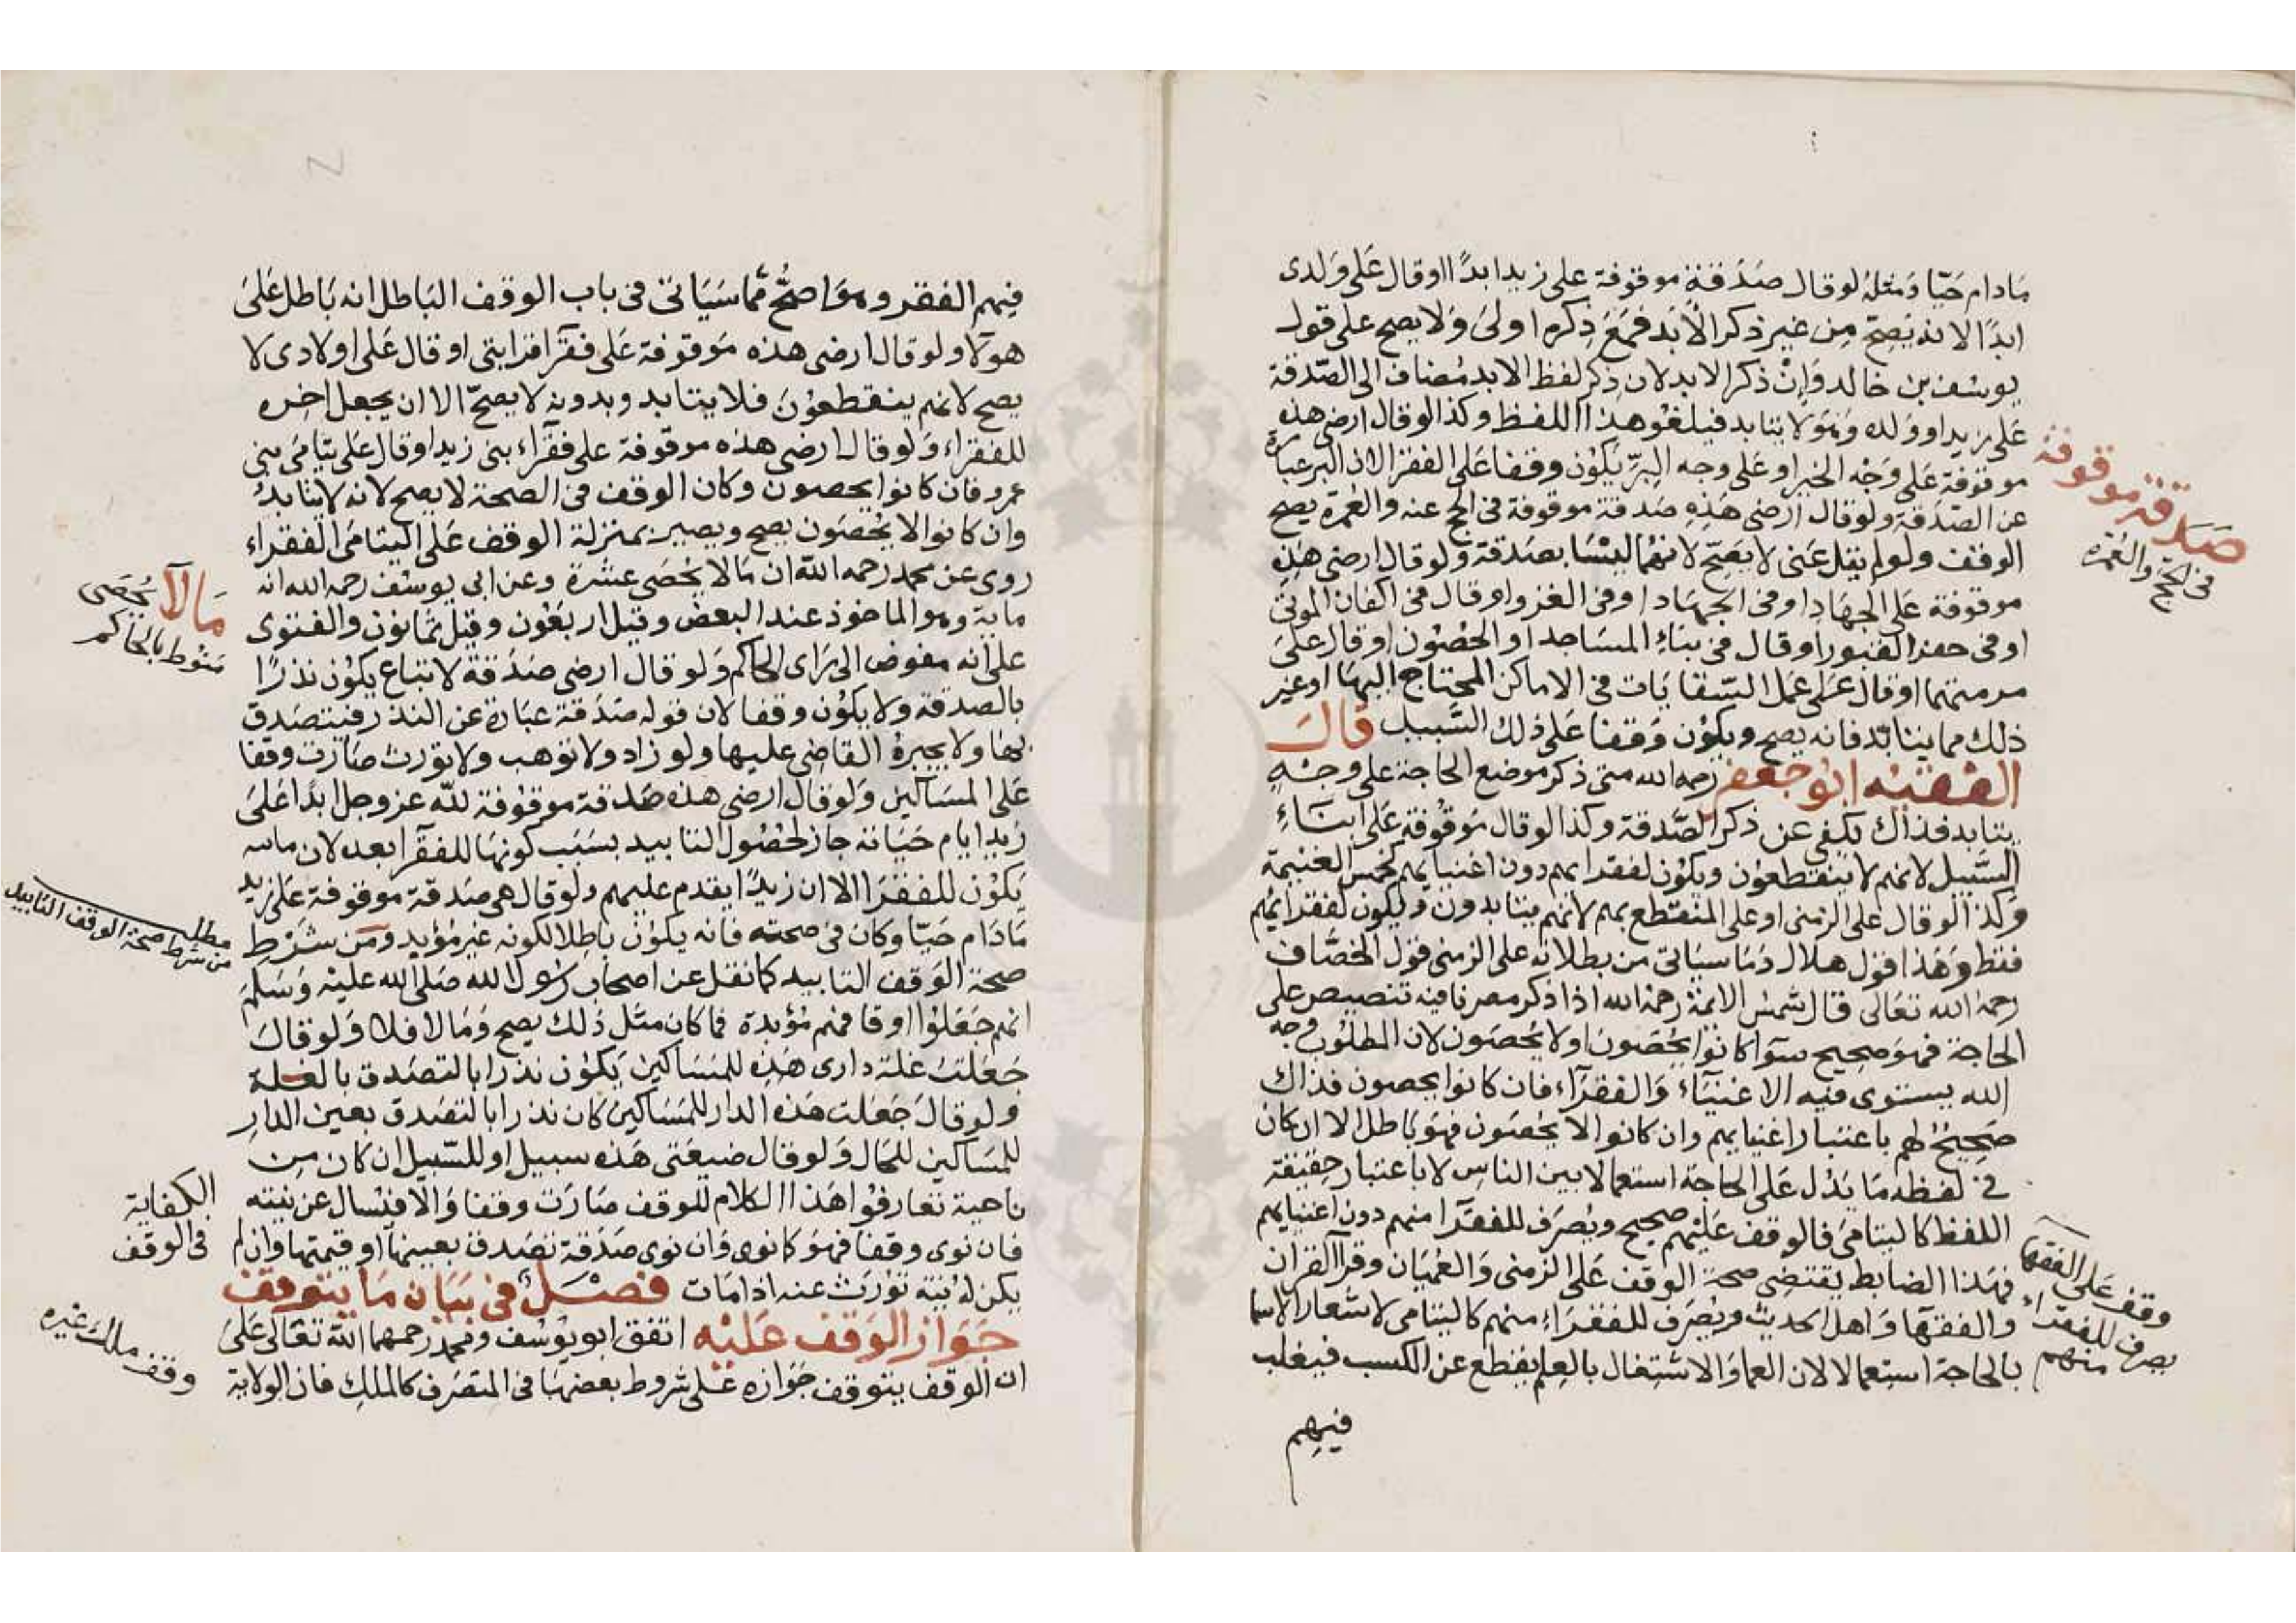 مادام حيا ومثله لو قال صدقة موقوفة على زيد ابدا او قال على ولدى
ابدا لانه يصح من غير ذكر الأبد فمع ذكره اولى ولا يصح على قول
يوسف بن خالد وإن ذكر الابد لان ذكر لفظ الابد مضاف الى الصدقة
على زيد او ولده وهو لا يتابد فيلغو هذا اللفظ وكذا لو قال ارضى هذه
موقوفة على وجه الخير او على وجه البر يكون وقفا على الفقرا لان البر عبارة
عن الصدقة ولو قال ارضى هذه صدقة موقوفة فى الحج عنه والعمرة يصح
الوقف ولو لم يقل عنى لا يصح لانهما ليسا بصدقة ولو قال ارضى هذه
موقوفة على الجهاد او فى الجهاد او فى الغزو او قال فى اكفان الموتى
او فى حفر القبور او قال فى بناء المساجد او الحصون او قال على
مرمتهما او قال على عمل السقايات فى الاماكن المحتاج اليها او غير
ذلك مما يتابد فانه يصح ويكون وقفا على ذلك السبيل قال
الفقيه ابو جعفر رحمه الله متى ذكر موضع الحاجة على وجه
يتابد فذاك يكفى عن ذكر الصدقة وكذا لو قال موقوفة على ابناء
السبيل لانهم لا ينقطعون ويكون لفقرايهم دون اغنيايهم كخمس الغنيمة
وكذا لو قال على الزمنى او على المنقطع بهم لانهم يتابدون ويكون لفقرايهم
فقط وهذا قول هلال وما سياتى من بطلانه على الزمنى قول الخصاف
رحمه الله تعالى قال شمس الائمة رحمه الله اذا ذكر مصرفا فيه تنصيص على
الحاجة فهو صحيح سوا كانوا يحصون او لا يحصون لان المطلوب وجه
الله يستوى فيه الاغنياء والفقراء فان كانوا يحصون فذاك
صحيح لهم باعتبار اغنيايهم وان كانوا لا يحصون فهو باطل الا ان كان
فى لفظه ما يدل على الحاجة استعمالا بين الناس لا باعتبار حقيقة
اللفظ كاليتامى فالوقف عليهم صحيح ويصرف للفقرا منهم دون اغنيايهم
فهذا الضابط يقتضى صحة الوقف على الزمنى والعميان وقرا القران
والفقها واهل الحديث ويصرف للفقراء منهم كاليتامى لاشعار الاسما
بالحاجة استعمالا لان العما والاشتغال بالعلم يقطع عن الكسب فيغلب
فيهم
صدقة موقوفة
فى الحج والعمرة
وقف على الفقها
يصرف للفقراء
منهم
فيهم الفقر وهو اصح مما سياتى فى باب الوقف الباطل انه باطل على
هولاء ولو قال ارضى هذه موقوفة على فقرا قرابتى او قال على اولادى لا
يصح لانهم ينقطعون فلا يتابد وبدونه لا يصح الا ان يجعل اخره
للفقراء ولو قال ارضى هذه موقوفة على فقراء بنى زيد او قال على يتامى بنى
عمرو فان كانوا يحصون وكان الوقف فى الصحة لا يصح لانه لا يتابد
وان كانوا لا يحصون يصح ويصير بمنزلة الوقف على اليتامى الفقراء
روى عن محمد رحمه الله ان ما لا يحصى عشرة وعن ابى يوسف رحمه الله انه
ماية وهو الماخوذ عند البعض وقيل اربعون وقيل ثمانون والفتوى
على انه مفوض الى راى الحاكم ولو قال ارضى صدقة لا تباع يكون نذرا
بالصدقة ولا يكون وقفا لان قوله صدقة عبارة عن النذر فيتصدق
بها ولا يجبره القاضى عليها ولو زاد ولا توهب ولا تورث صارت وقفا
على المساكين ولو قال ارضى هذه صدقة موقوفة لله عز وجل ابدا على
زيد ايام حياته جاز لحصول التابيد بسبب كونها للفقرا بعد لان ماله
يكون للفقرا الا ان زيدا يقدم عليهم ولو قال هى صدقة موقوفة على زيد
مادام حيا وكان فى صحته فانه يكون باطلا لكونه غير مؤبد ومن شرط
صحة الوقف التابيد كما نقل عن اصحاب رسول الله صلى الله عليه وسلم
انهم جعلوا اوقافهم مؤبدة فما كان مثل ذلك يصح وما لا فلا ولو قال
جعلت غلة دارى هذه للمساكين يكون نذرا بالتصدق بالغلة
ولو قال جعلت هذه الدار للمساكين كان نذرا بالتصدق بعين الدار
للمساكين للحال ولو قال ضيعتى هذه سبيل او للسبيل ان كان من
ناحية تعارفوا هذا الكلام للوقف صارت وقفا والا فيسال عن نيته
فان نوى وقفا فهو كما نوى وان نوى صدقة تصدق بعينها او قيمتها وان لم
يكن له نية تورث عنه اذا مات فصل فى بيان ما يتوقف
جواز الوقف عليه اتفق ابو يوسف ومحمد رحمهما الله تعالى على
ان الوقف يتوقف جوازه على شروط بعضها فى المتصرف كالملك فان الولاية
ما لا يحصى
منوط بالحاكم
مطلب
من شرط صحة الوقف التابيد
الكفاية
فى الوقف
وقف ملك غيره